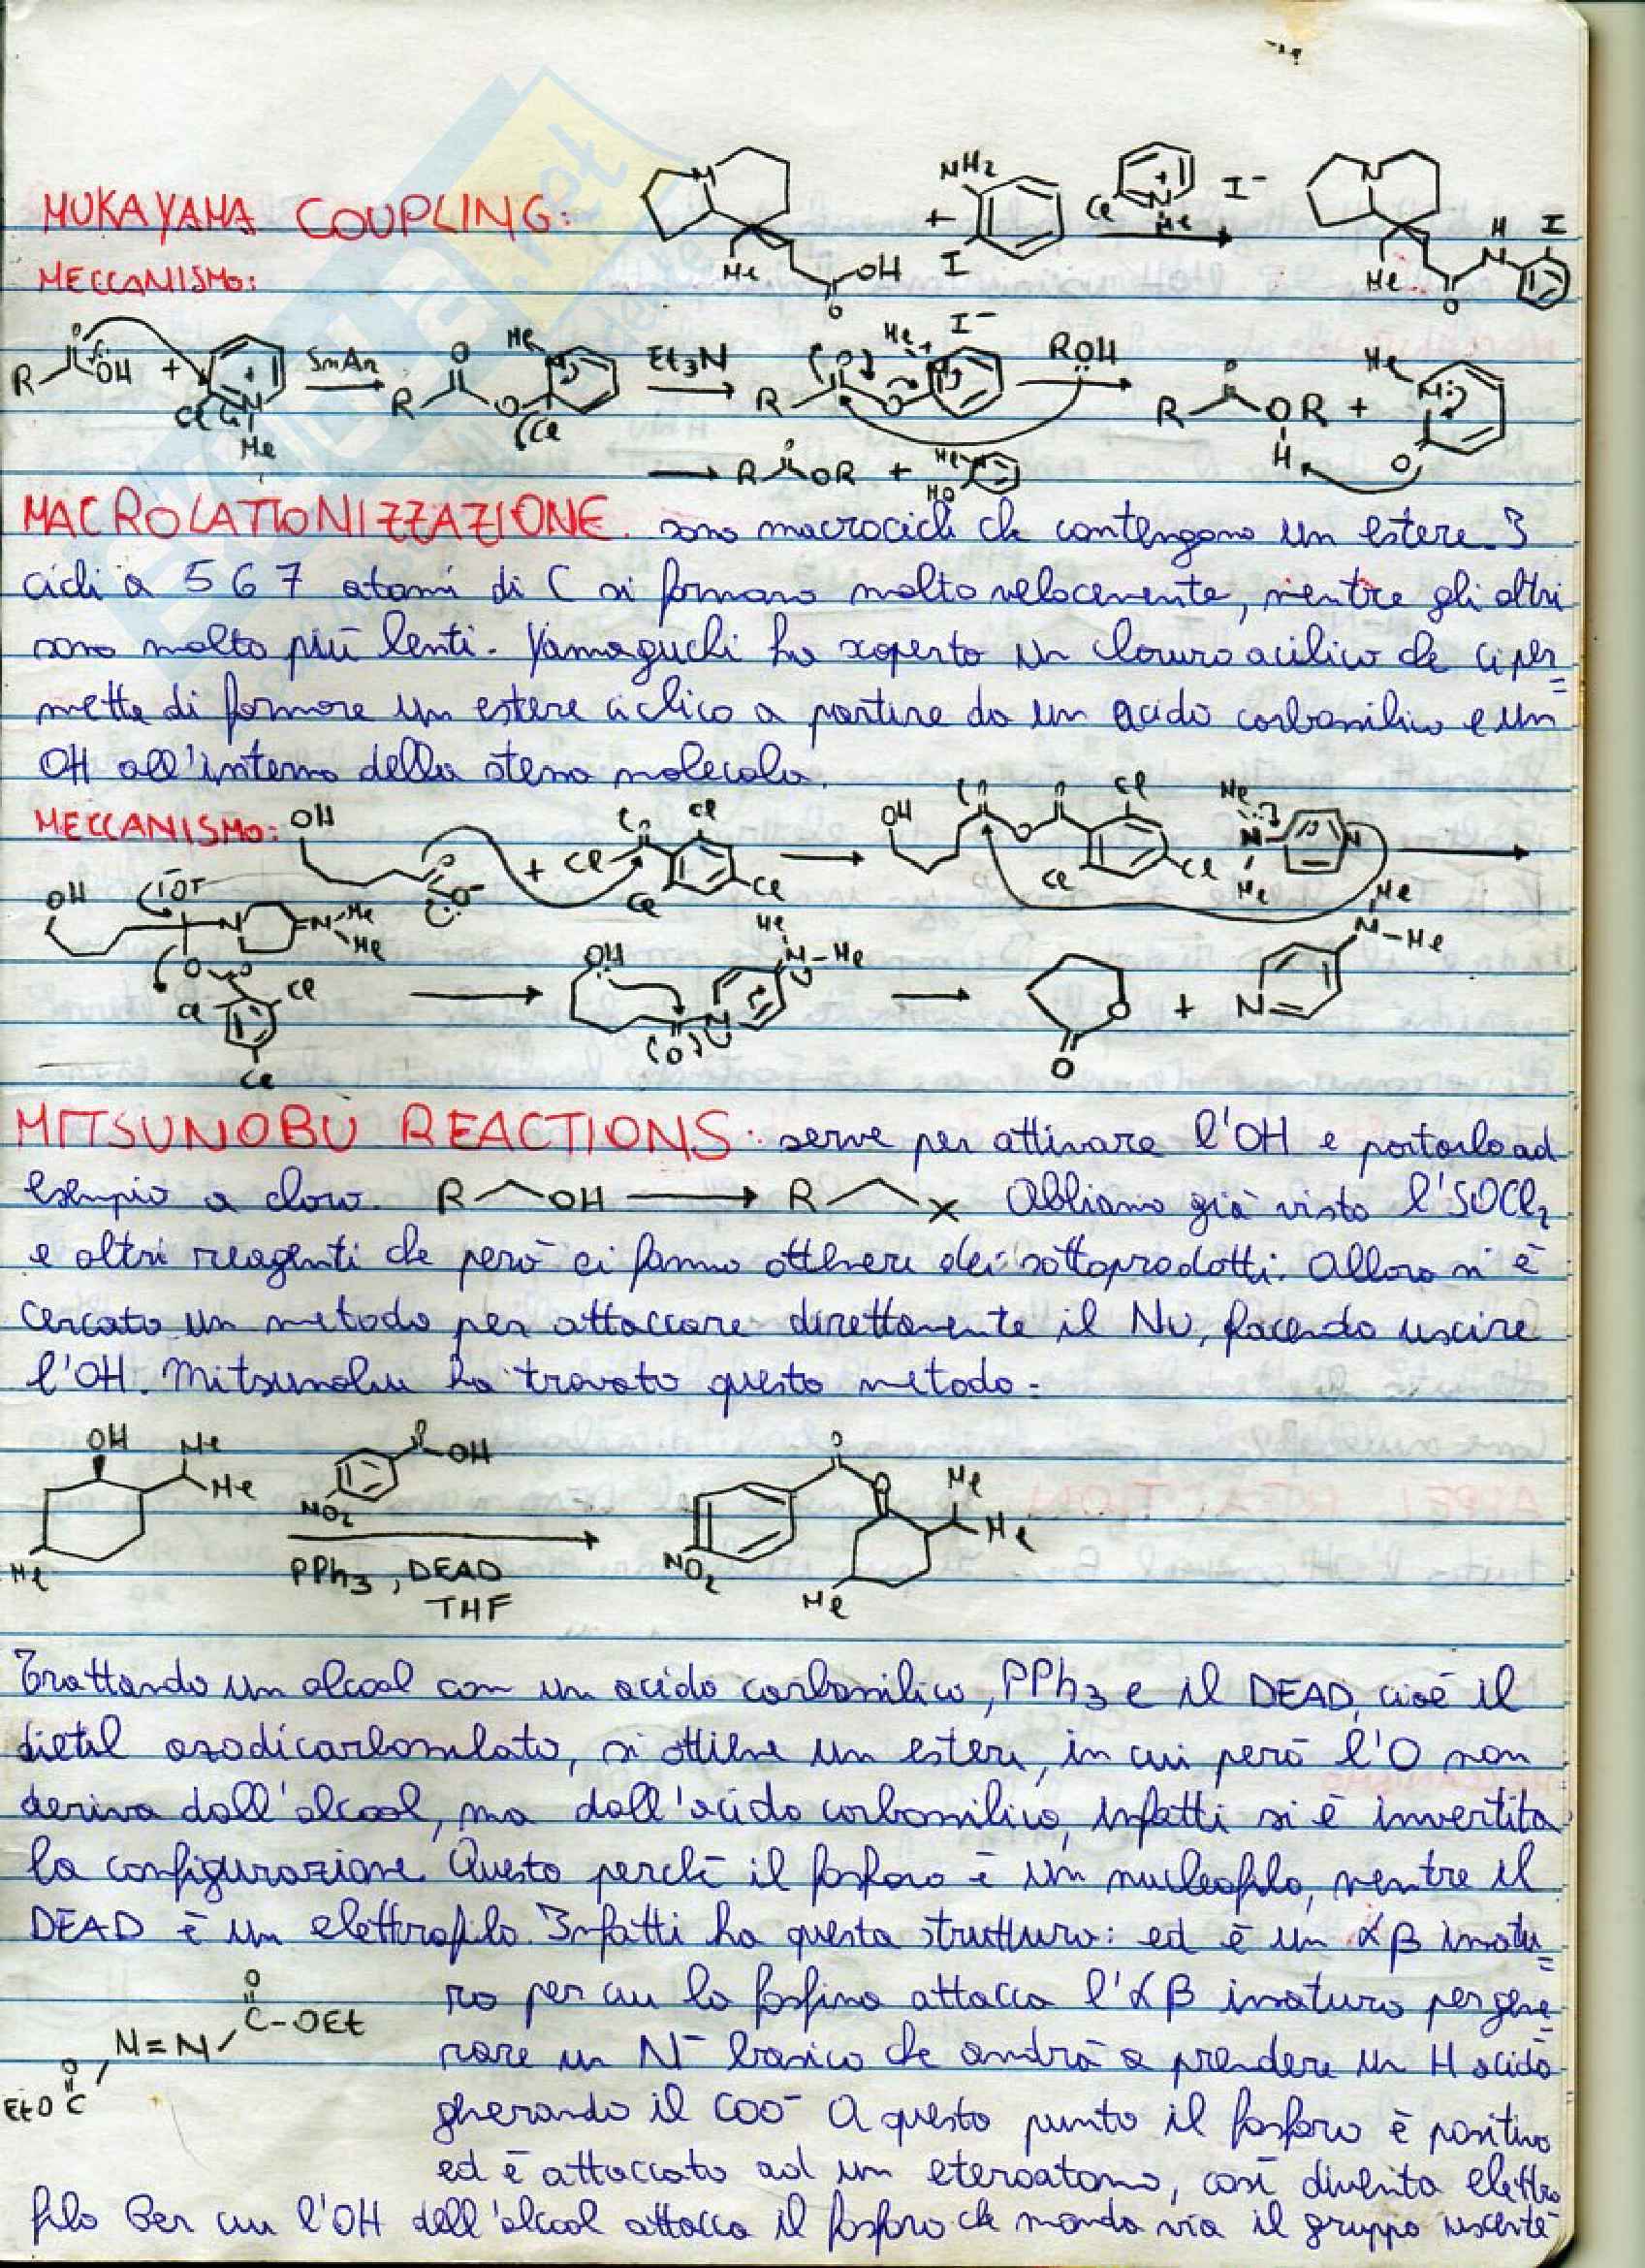 MUKAYAMA COUPLING:
N
OH
O
Me
+
NH2
I
Cl
+
N
Me
I⁻
N
Me
O
H
N
I
MECCANISMO:
R
O
OH
+
Cl
+
N
Me
SnAr
R
O
O
Me
Cl
Et3N
R
O
O
Me
+
I⁻
ROH
R
O
OR
H
+
Me
N
O
R
O
OR
+
Me
HO
MACROLATIONIZZAZIONE. sono macrocicli che contengono un estere. I
cicli a 5 6 7 atomi di C si formano molto velocemente, mentre gli altri
sono molto più lenti. Yamaguchi ha scoperto un cloruro acilico che ci per=
mette di formare un estere ciclico a partire da un acido carbonilico e un
OH all'interno della stessa molecola.
MECCANISMO:
OH
O
O⁻
+
Cl
O
Cl
Cl
Cl
OH
O
O
O
Cl
Cl
Cl
Me
N
Me
N
OH
N
N
Me
Me
O
O
Cl
Cl
Cl
OH
(O)
N
Me
N-Me
O
O
+
N
Me
N-Me
MITSUNOBU REACTIONS: serve per attivare l'OH e portarlo ad
esempio a cloro. R OH R X Abbiamo già visto l'SOCl2
e altri reagenti che però ci fanno ottenere dei sottoprodotti. Allora si è
cercato un metodo per attaccare direttamente il Nu, facendo uscire
l'OH. Mitsunobu ha trovato questo metodo:
OH
Me
Me
Me
O
OH
NO2
PPh3, DEAD
THF
O
O
NO2
Me
Me
Me
Trattando un alcool con un acido carbonilico, PPh3 e il DEAD, cioè il
dietil azodicarbonilato, si ottiene un estere, in cui però l'O non
deriva dall'alcool, ma dall'acido carbonilico, infatti si è invertita
la configurazione. Questo perchè il fosforo è un nucleofilo, mentre il
DEAD è un elettrofilo. Infatti ha questa struttura: ed è un αβ insatu=
ro per cui la fosfina attacca l'αβ insaturo per gene=
rare un N⁻ basico che andrà a prendere un H acido
generando il COO⁻ A questo punto il fosforo è positivo
ed è attaccato ad un eteroatomo, così diventa elettro
filo Per cui l'OH dell'alcool attacca il fosforo che manda via il gruppo uscente
O
C-OEt
N=N
O
EtO C